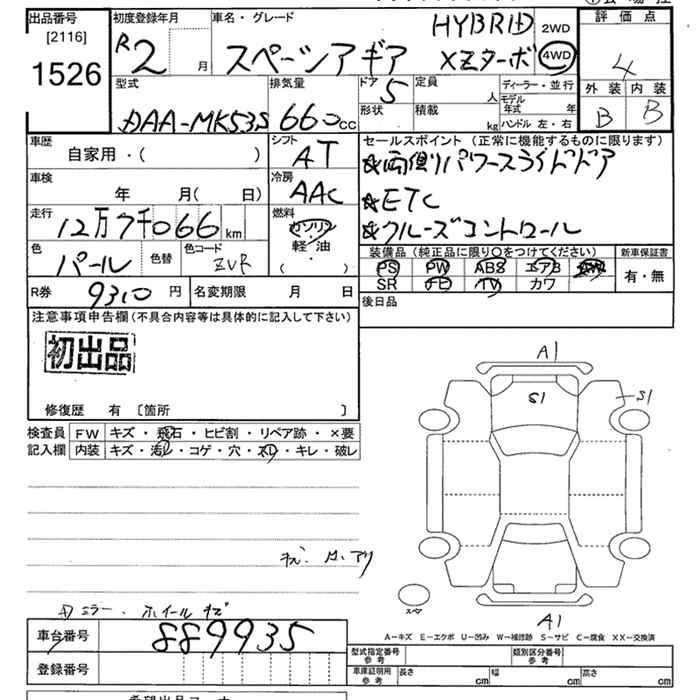 出品番号 初度登録年月 車名・グレード HYBRID 2WD 評価点
[2116] R2 月 スペーシアギア XZターボ 4WD 4
1526
型式 排気量 ドア 5 定員 人 ディーラー・並行 外装 内装
DAA-MK53S 660cc 形状 積載 kg モデル年式 年 B B
ハンドル 左・右
車歴 シフト セールスポイント (正常に機能するものに限ります)
自家用・( ) AT ★両側パワースライドドア
車検 冷房 ★ETC
年 月( 日) AAC ★クルーズコントロール
走行 燃料
12万7千066km ガソリン
軽・油
・( )
色 色替 色コード 装備品 (純正品に限り○をつけてください) 新車保証書
パール ZVR PS PW ABS エアB AW 有・無
SR ナビ TV カワ
R券 9310円 名変期限 月 日 後日品
注意事項申告欄(不具合内容等は具体的に記入して下さい)
初出品
修復歴 有 〔箇所 〕
検査員 FW キズ・飛石・ヒビ割・リペア跡・×要
記入欄 内装 キズ・汚れ・コゲ・穴・スレ・キレ・破レ
A1
S1 S1
ミラー・ホイールキズ
スペア
A1
A−キズ E−エクボ U−凹み W−補修跡 S−サビ C−腐食 XX−交換済
車台番号 889935 型式指定番号 参考 類別区分番号 参考
登録番号 車庫証明用 参考 長さ cm 幅 cm 高さ cm